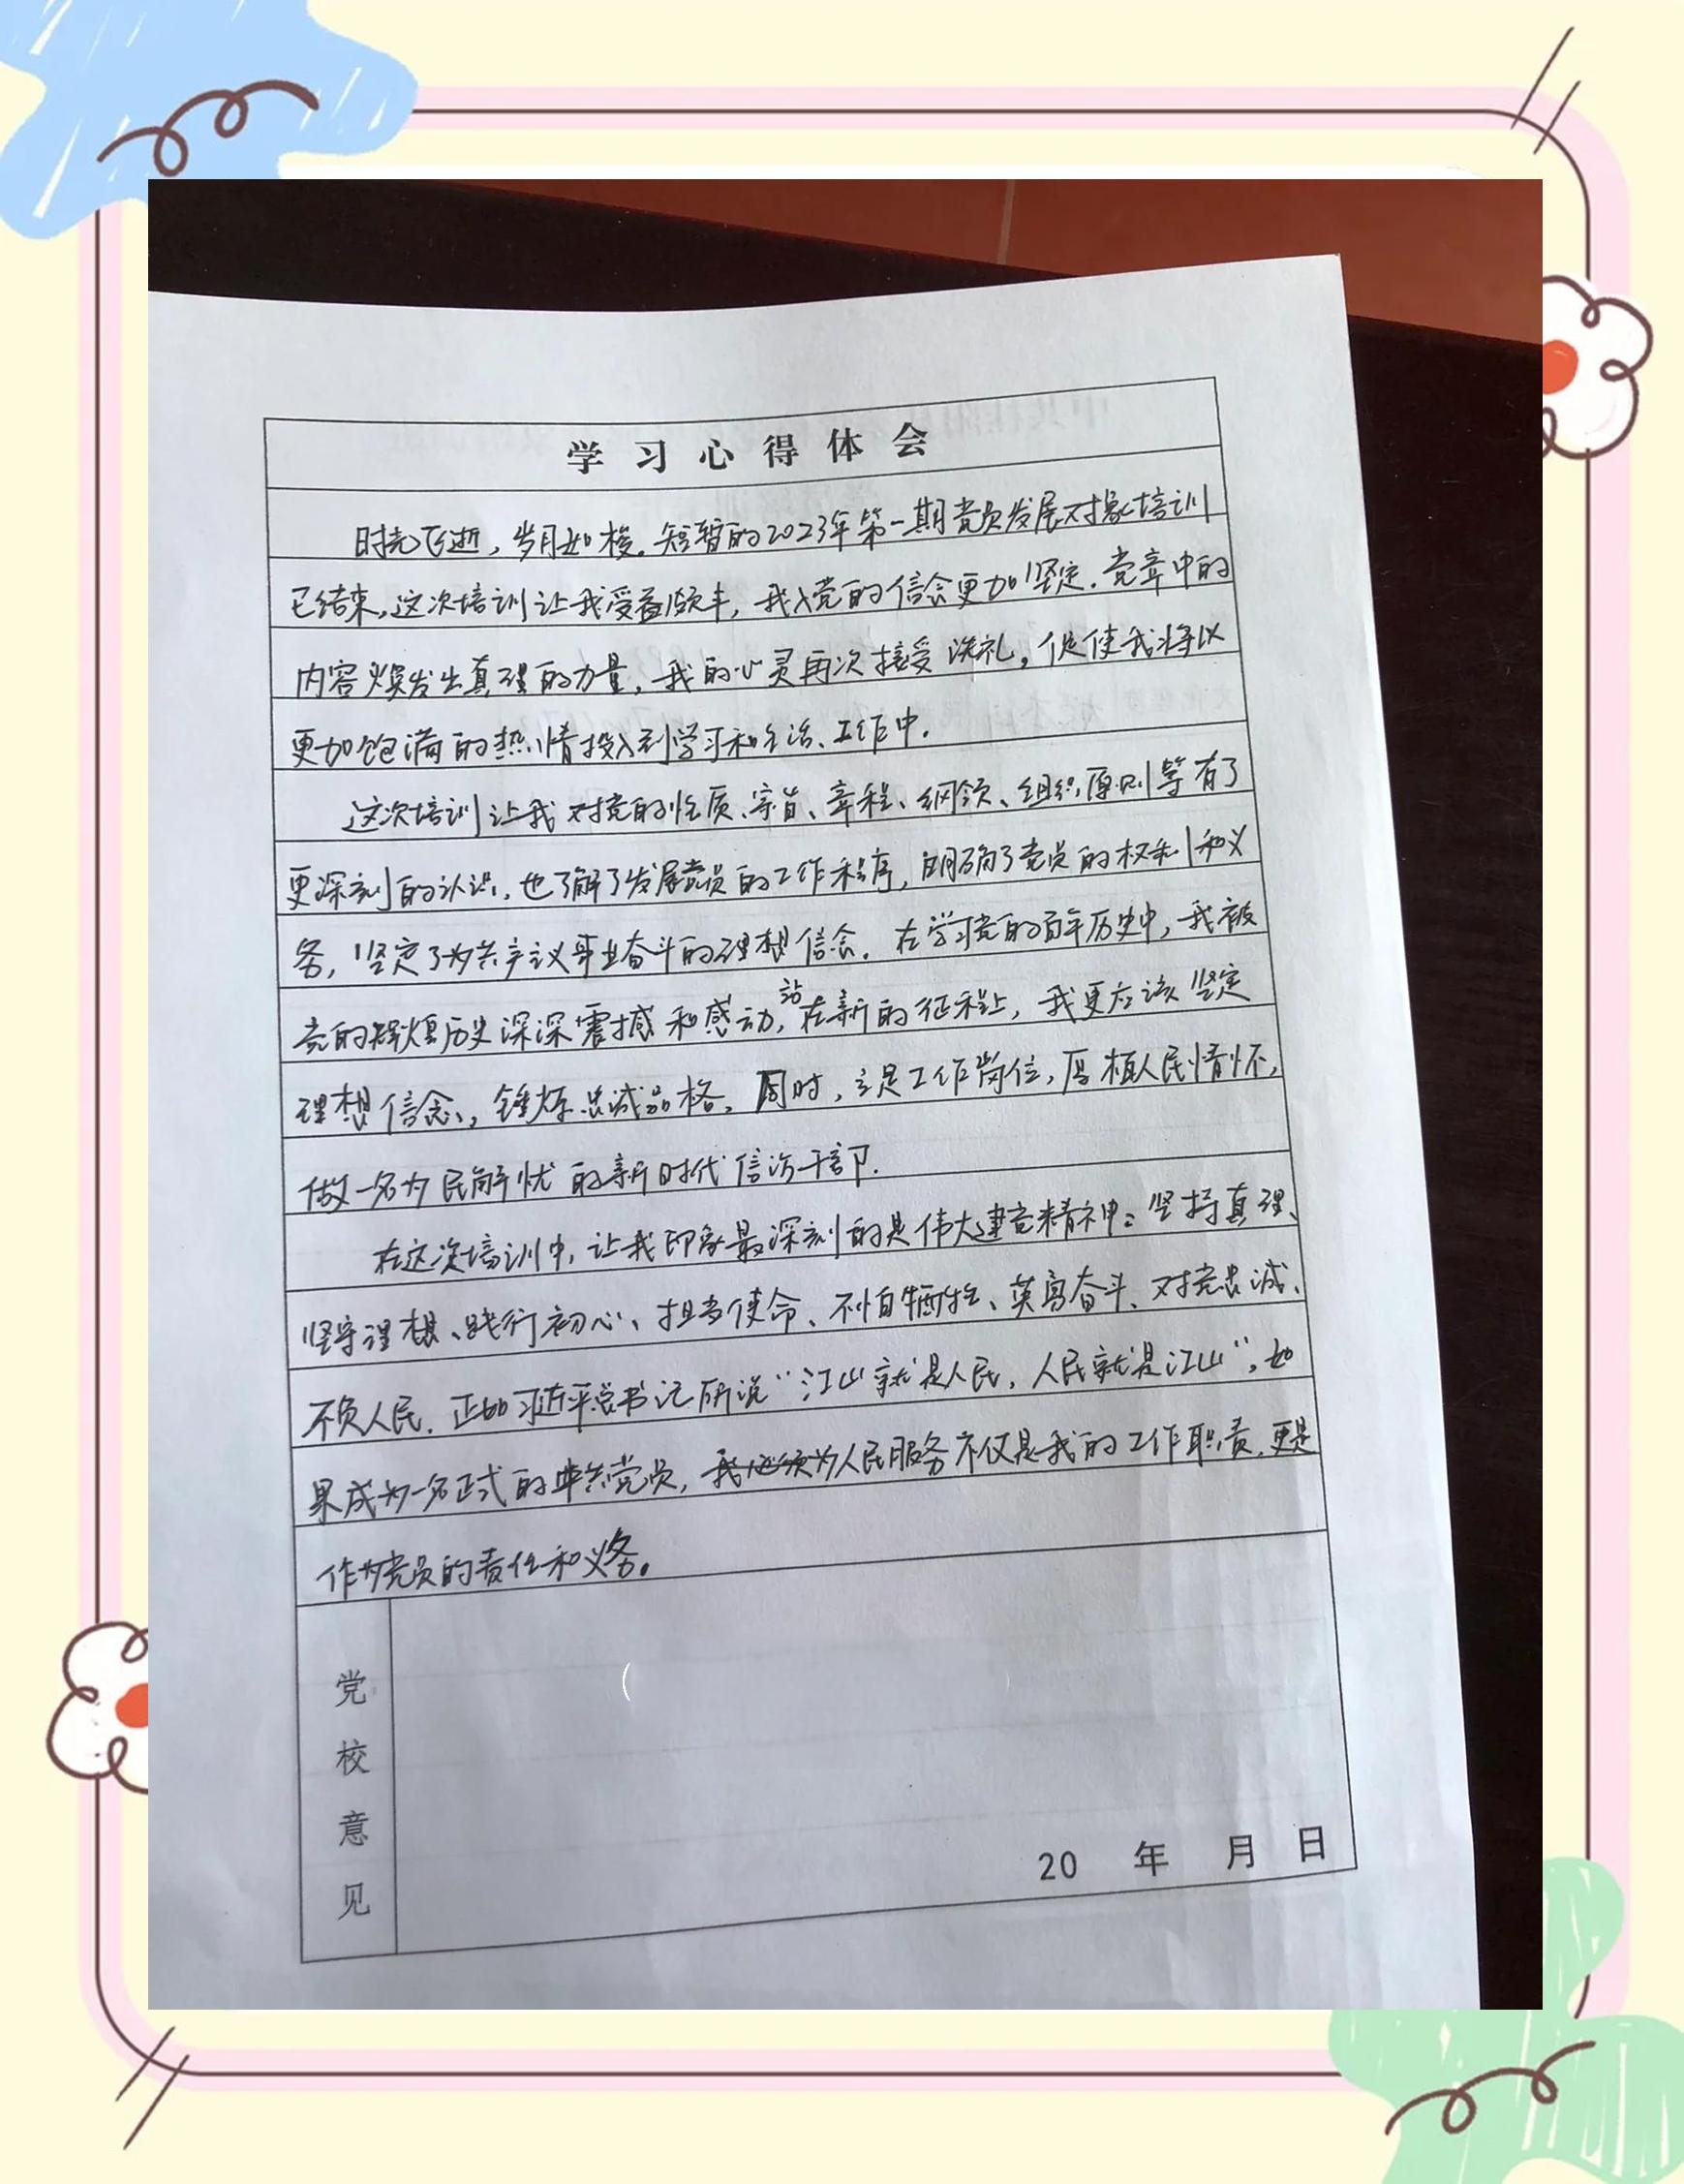 学习心得体会
时光飞逝，岁月如梭。短暂的2023年第一期党员发展对象培训
已结束，这次培训让我受益颇丰，我入党的信念更加坚定。党章中的
内容焕发出真理的力量，我的心灵再次接受洗礼，促使我将以
更加饱满的热情投入到学习和生活、工作中。
这次培训让我对党的性质、宗旨、章程、纲领、组织原则等有了
更深刻的认识，也了解了发展党员的工作程序，明确了党员的权利和义
务，坚定了为共产主义事业奋斗的理想信念。在学习党的百年历史中，我被
党的辉煌历史深深震撼和感动，站在新的征程上，我更应该坚定
理想信念，锤炼忠诚品格。同时，立足工作岗位，厚植人民情怀，
做一名为民解忧的新时代信访干部。
在这次培训中，让我印象最深刻的是伟大建党精神：坚持真理、
坚守理想、践行初心、担当使命、不怕牺牲、英勇奋斗、对党忠诚、
不负人民。正如习近平总书记所说“江山就是人民，人民就是江山”，如
果成为一名正式的中共党员，我必须为人民服务不仅是我的工作职责，更是
作为党员的责任和义务。
党校意见
20 年 月 日